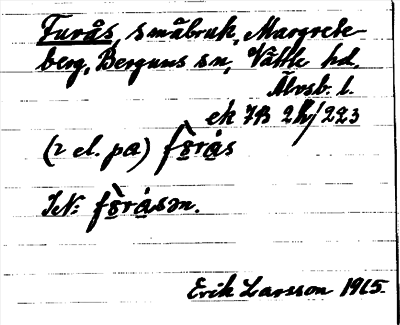 Furås, småbruk, Margrete-
berg, Bergums sn, Vättle hd,
Älvsb. l.
ek 7B 2h/223
(i el. på) fo̱ràs
IN: fo̱ràsən.
Erik Larsson 1915.